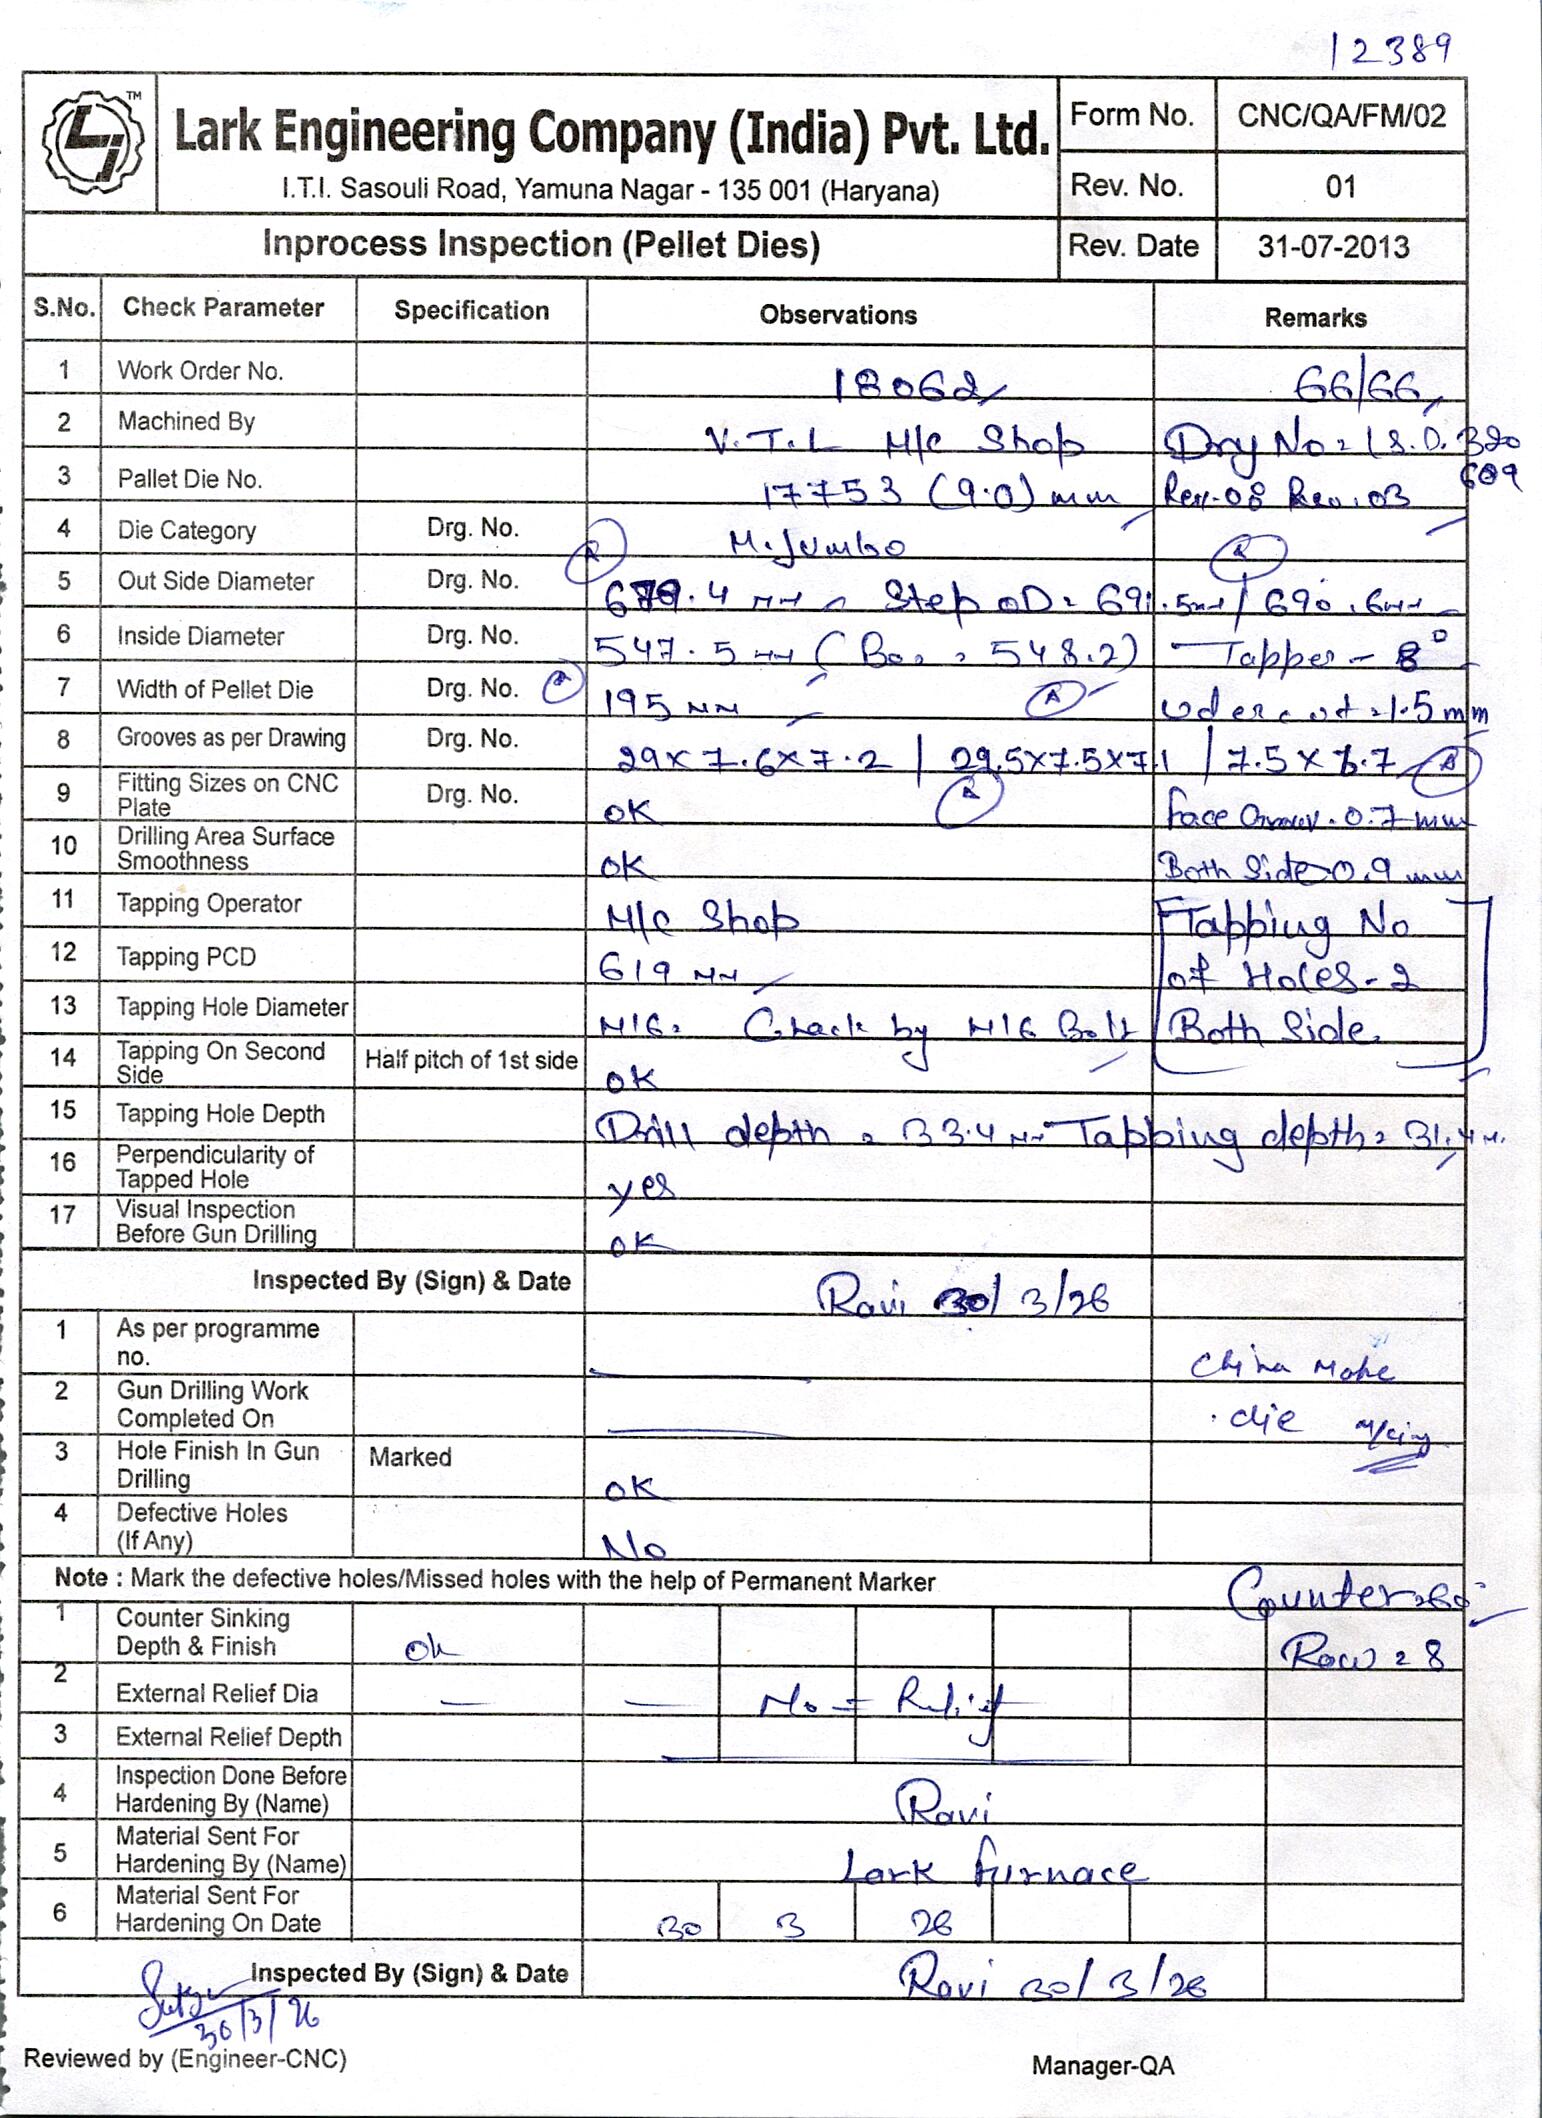 12389
TM
Lark Engineering Company (India) Pvt. Ltd.
I.T.I. Sasouli Road, Yamuna Nagar - 135 001 (Haryana)
Form No. CNC/QA/FM/02
Rev. No. 01
Inprocess Inspection (Pellet Dies) Rev. Date 31-07-2013
S.No. Check Parameter Specification Observations Remarks
1 Work Order No. 18062 66/66
2 Machined By V.T.L M/C Shop Drg No = I.S.D. 320
609
3 Pallet Die No. 17753 (9.0) mm Rev-08 Rev.03
4 Die Category Drg. No. M.Jumbo
5 Out Side Diameter Drg. No. Step OD = 691.5 / 690.6
6 Inside Diameter Drg. No. 547.5 mm ( = 548.2) Tapper - 8°
7 Width of Pellet Die Drg. No. 195 mm Udercut = 1.5 mm
8 Grooves as per Drawing Drg. No. 29 x 7.6 x 7.2 | 29.5 x 7.5 x 7.1 | 7.5 x
9 Fitting Sizes on CNC Plate Drg. No. OK Face 0.7 mm
10 Drilling Area Surface Smoothness OK Both Side 0.9 mm
11 Tapping Operator M/C Shop Tapping No
12 Tapping PCD 619 mm of Holes - 2
13 Tapping Hole Diameter M16 = Check by M16 Bolt Both Side.
14 Tapping On Second Side Half pitch of 1st side OK
15 Tapping Hole Depth Drill depth = 33.4 mm Tapping depth = 31.4 m.
16 Perpendicularity of Tapped Hole yes
17 Visual Inspection Before Gun Drilling OK
Inspected By (Sign) & Date Ravi 30/3/26
1 As per programme no. China Make
2 Gun Drilling Work Completed On die
3 Hole Finish In Gun Drilling Marked OK
4 Defective Holes (If Any) No
Note : Mark the defective holes/Missed holes with the help of Permanent Marker Counter
1 Counter Sinking Depth & Finish Ok Row = 8
2 External Relief Dia — — No = Relief
3 External Relief Depth
4 Inspection Done Before Hardening By (Name) Ravi
5 Material Sent For Hardening By (Name) Lark furnace
6 Material Sent For Hardening On Date 30 3 26
Inspected By (Sign) & Date Ravi 30/3/26
30/3/26
Reviewed by (Engineer-CNC) Manager-QA